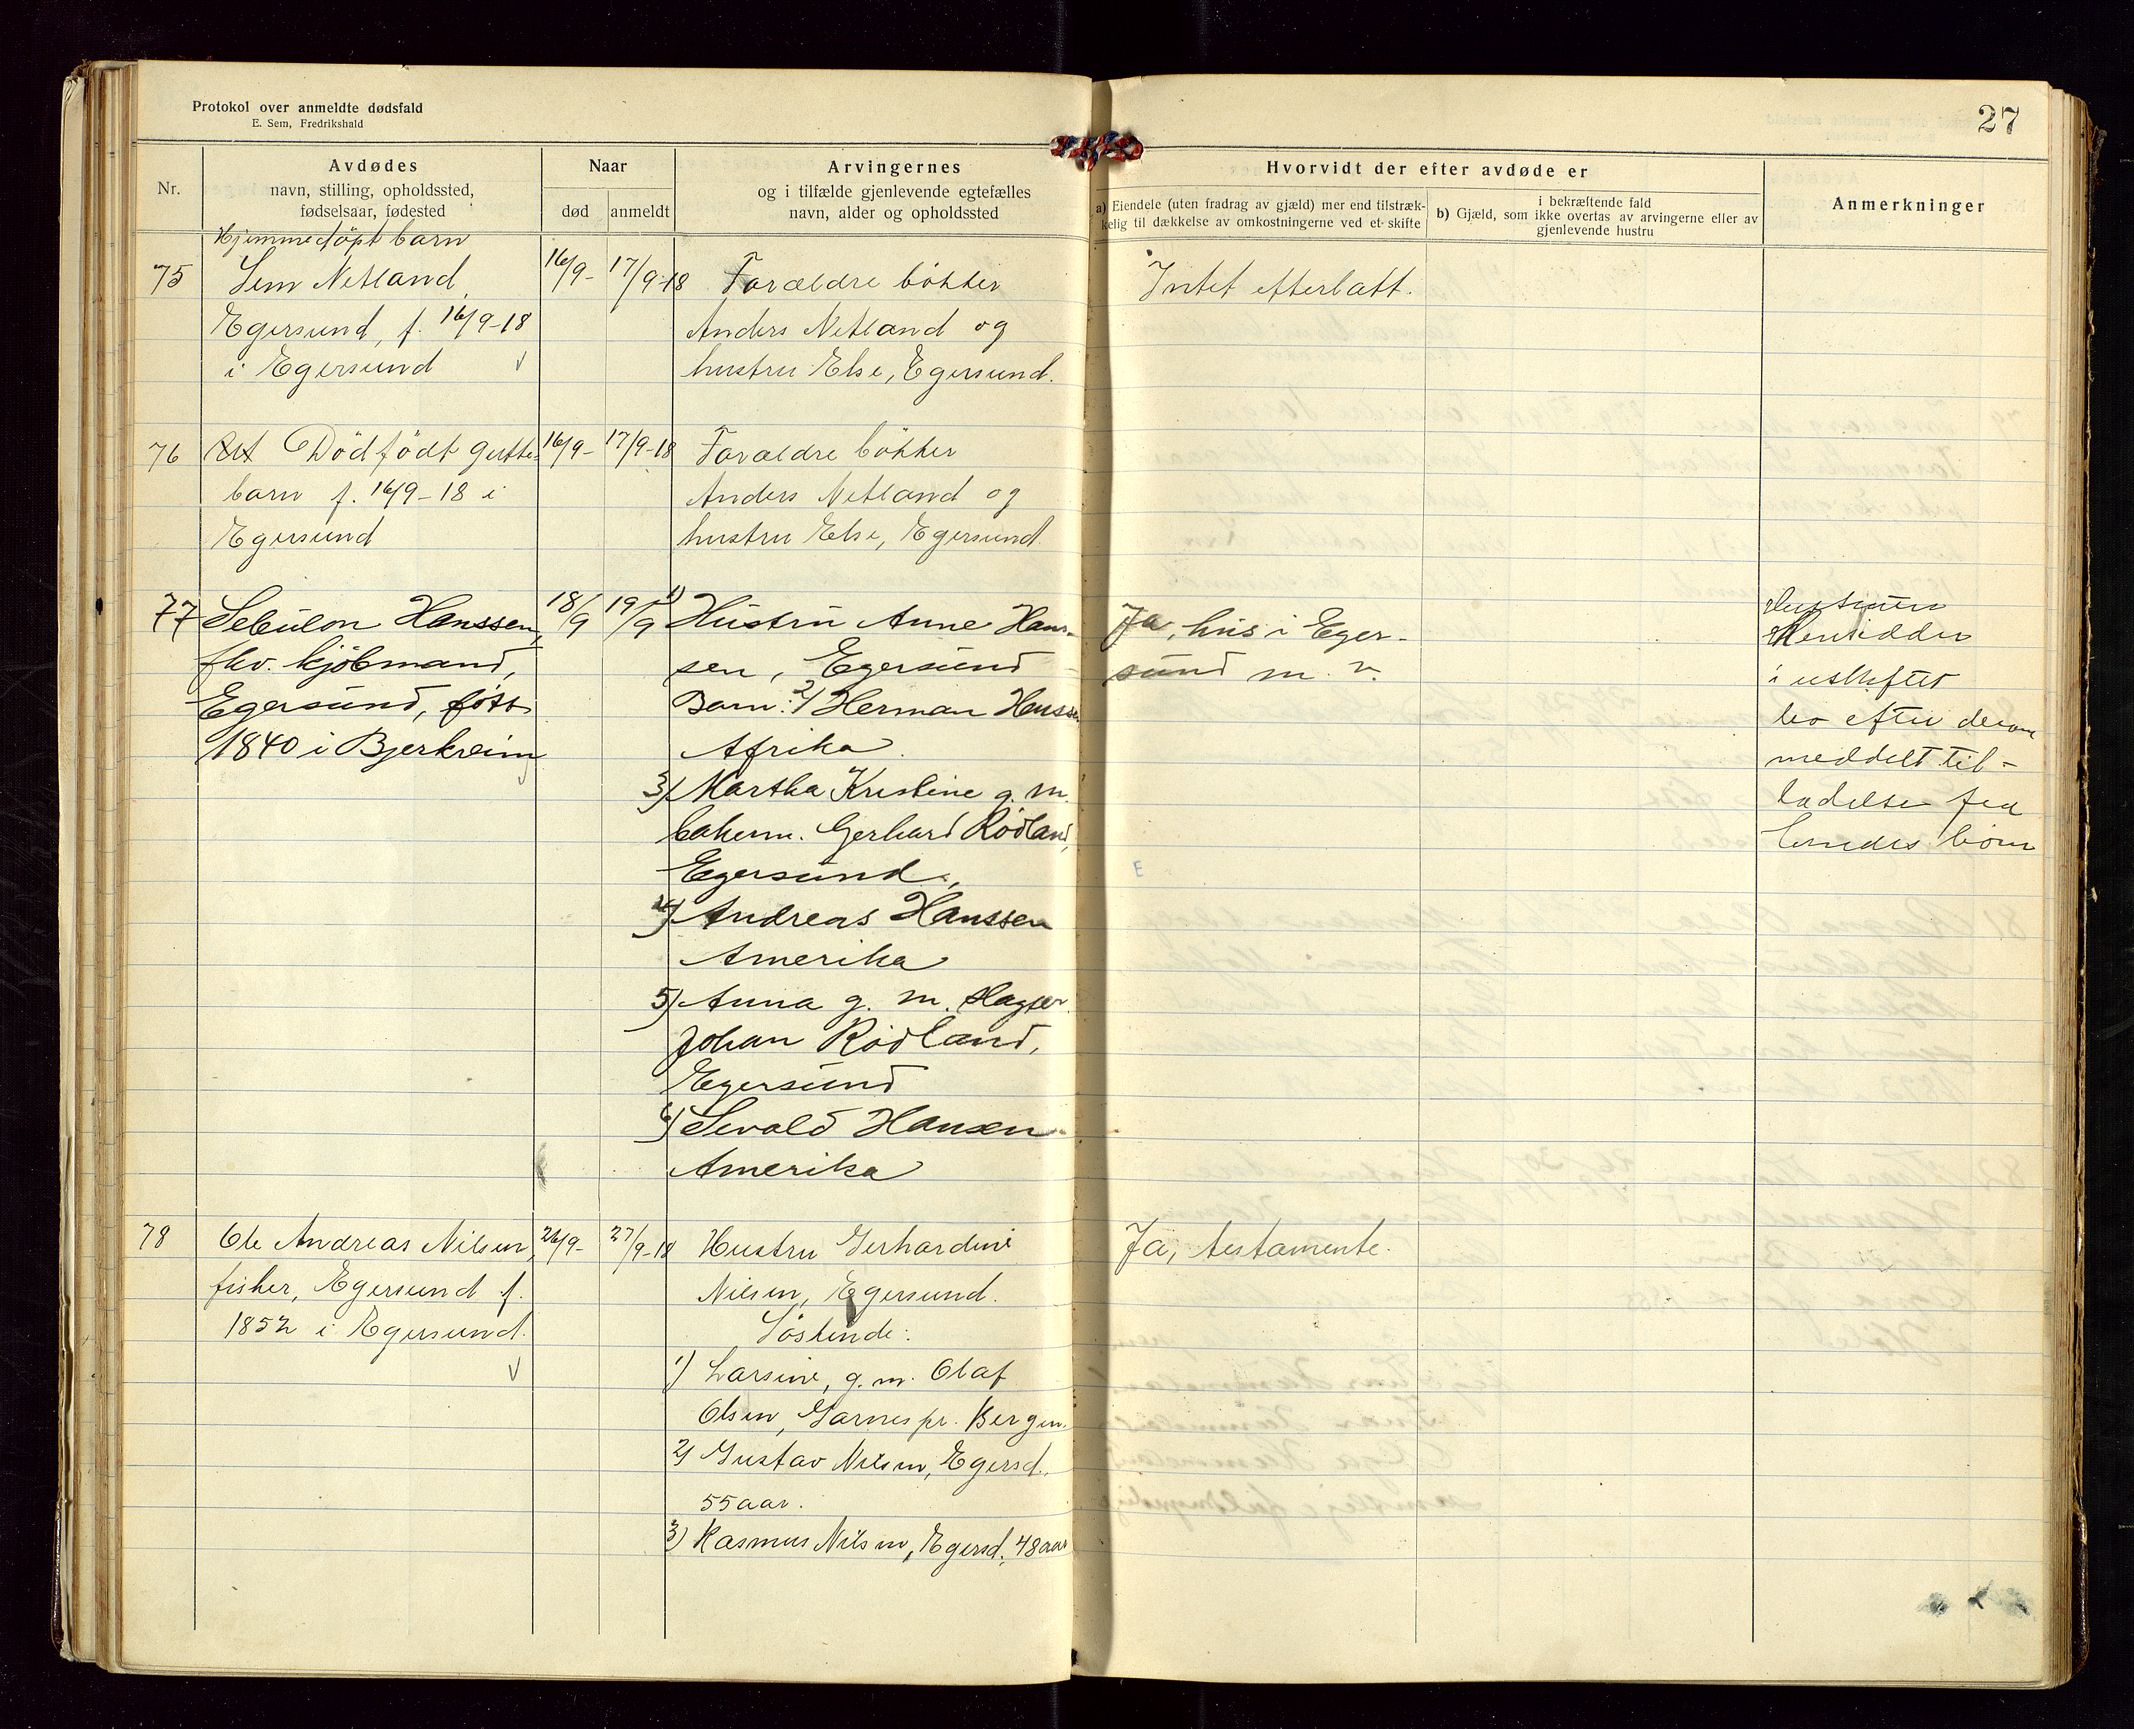 Protokol over anmeldte dødsfald
E. Sem, Fredrikshald
27
Nr.
Avdødes
navn, stilling, opholdssted,
fødselsaar, fødested
Naar
død
anmeldt
Arvingernes
og i tilfælde gjenlevende egtefælles
navn, alder og opholdssted
Hvorvidt der efter avdøde er
a) Eiendele (uten fradrag av gjæld) mer end tilstræk-
kelig til dækkelse av omkostningerne ved et skifte
i bekræftende fald
b) Gjæld, som ikke overtas av arvingerne eller av
gjenlevende hustru
Anmerkninger
Hjemmedöpt barn
75 Sem Netland, 16/9- 17/9-18 Forældre bökker Intet efterlatt.
Egersund, f. 16/9-18 Anders Netland og
i Egersund hustru Else, Egersund.
76 Dödfödt gutte- 16/9- 17/9-18 Forældre bökker
barn f. 16/9-18 i Anders Netland og
Egersund hustru Else, Egersund.
77 Sebulon Hanssen, 18/9 19/9 1) Hustru Anne Hans- Ja, hus i Eger-
fhv. kjöbmand, sen, Egersund sund m. v.
Egersund, fött Barn: 2) Herman Hanssen
1840 i Bjerkreim Afrika
3) Martha Kristine g. m.
bakerm. Gerhard Rödland,
Egersund,
4) Andreas Hanssen
Amerika
5) Anna g. m.
Johan Rödland,
Egersund
6) Sevald Hansen
Amerika
Hustruen
hensidder
i uskiftet
bo efter derom
meddelt til-
ladelse fra
börn
78 Ole Andreas Nilsen, 26/9- 27/9-18 Hustru Gerhardine Ja, testamente.
fisker, Egersund f. Nilsen, Egersund.
1852 i Egersund. Söskende:
1) Larsine, g. m. Olaf
Olsen, Garnes pr. Bergen.
2) Gustav Nilsen, Egersd.
55 aar.
3) Rasmus Nilsen, Egersd. 48 aar
E